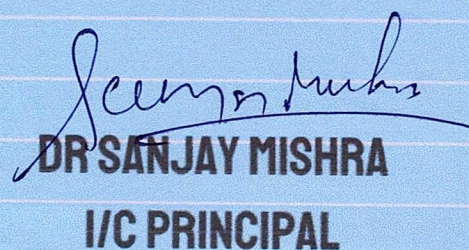 Sanjay Mishra
DR SANJAY MISHRA
I/C PRINCIPAL